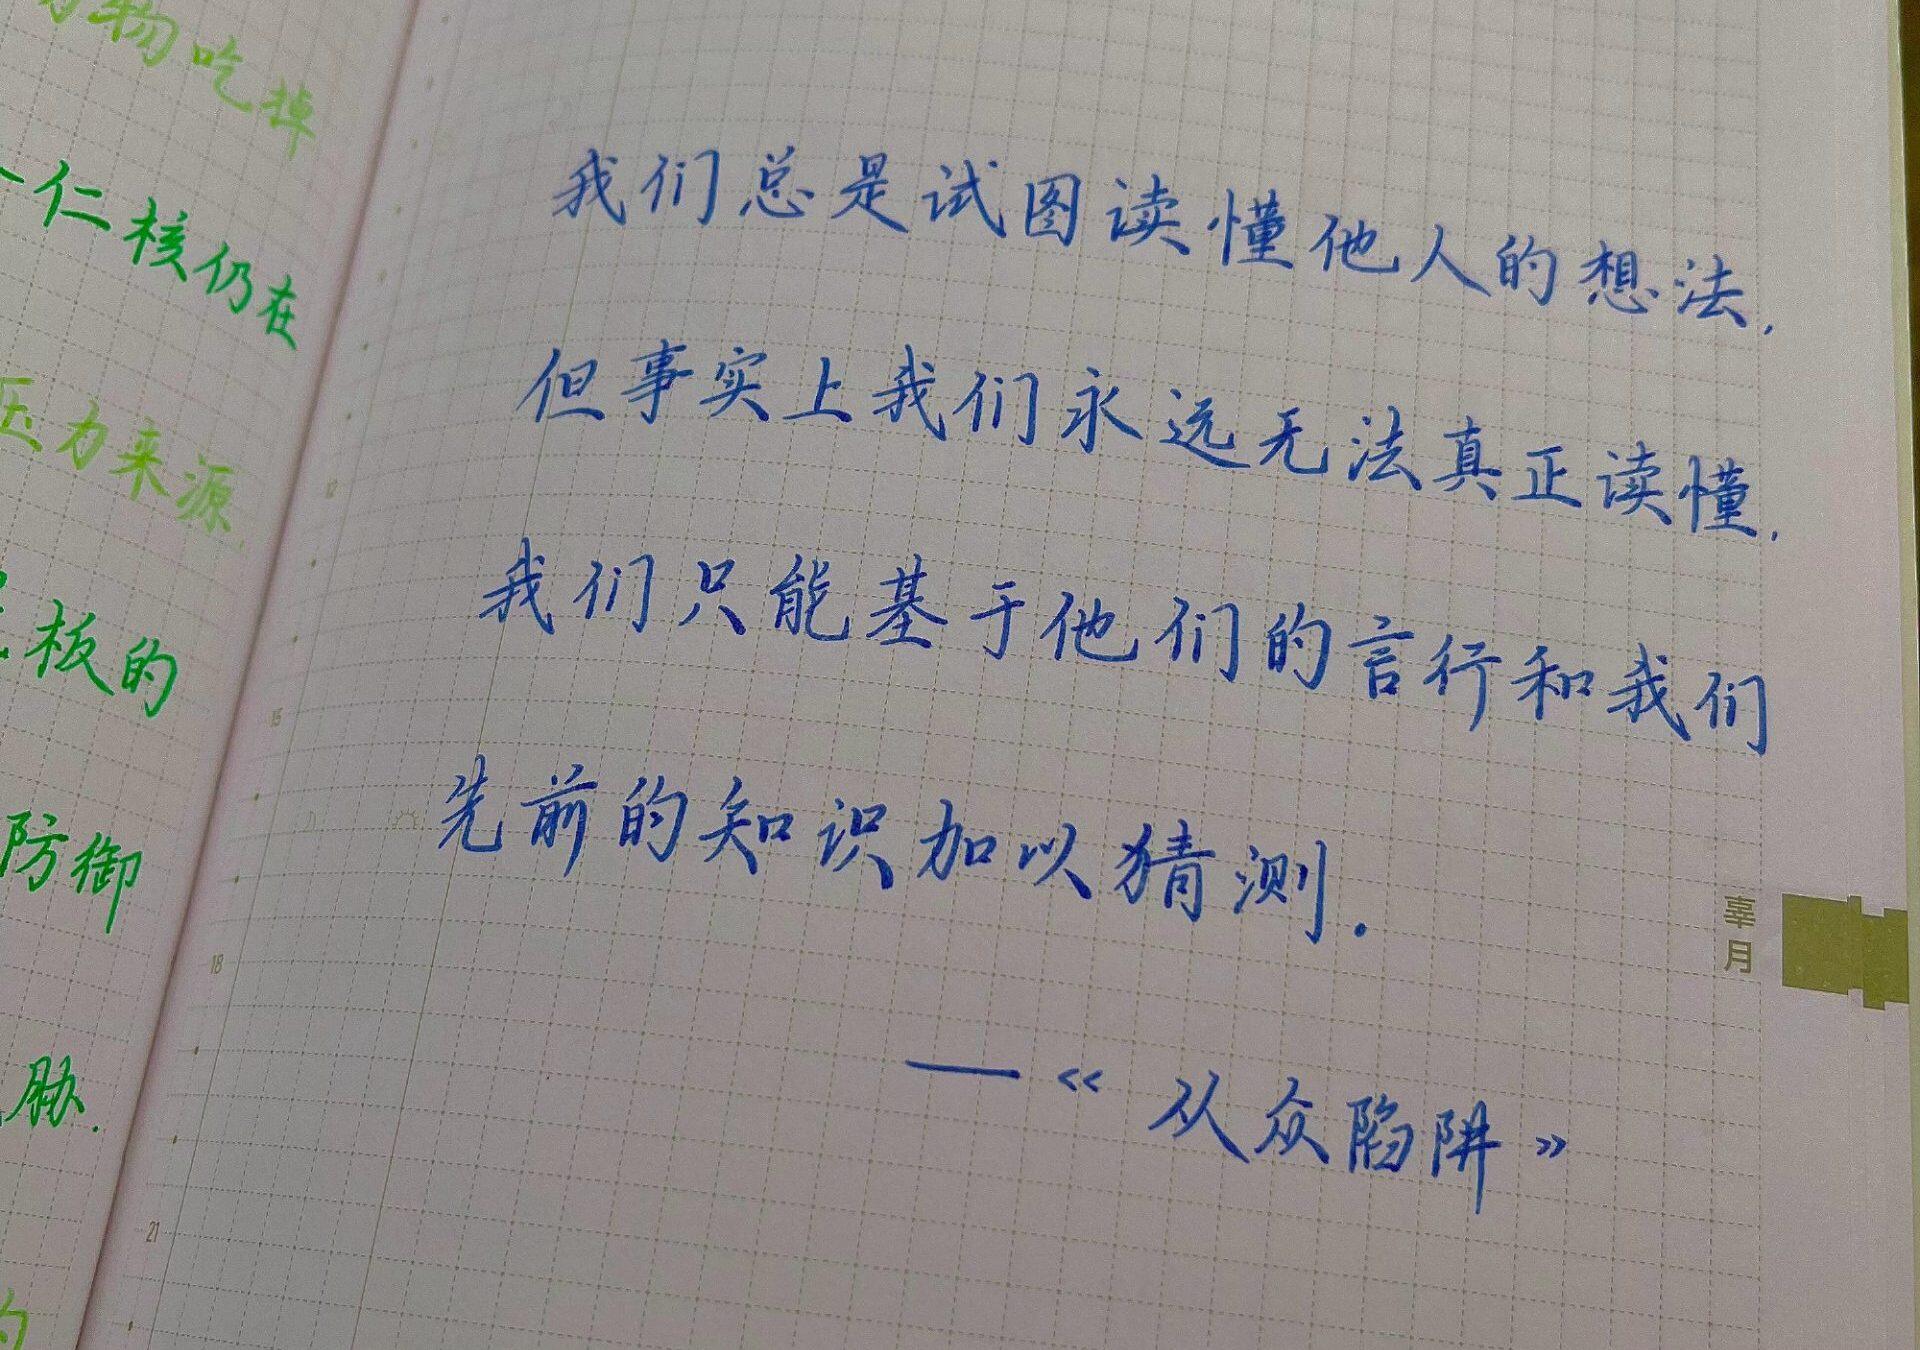 物吃掉
仁核仍在
压力来源,
板的
防御
胁.
我们总是试图读懂他人的想法,
但事实上我们永远无法真正读懂,
我们只能基于他们的言行和我们
先前的知识加以猜测.
——《从众陷阱》
12
15
18
21
辜月